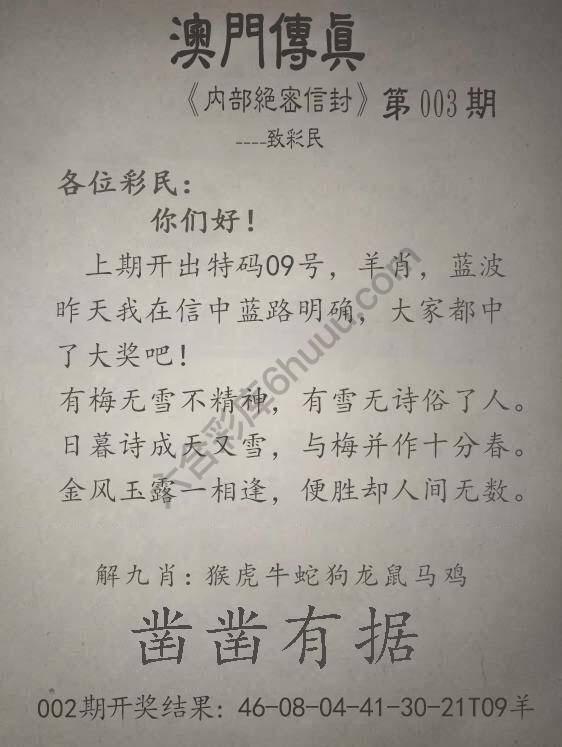 澳門傳眞
《内部絕密信封》第003期
----致彩民
各位彩民：
你们好！
上期开出特码09号，羊肖，蓝波
昨天我在信中蓝路明确，大家都中
了大奖吧！
有梅无雪不精神，有雪无诗俗了人。
日暮诗成天又雪，与梅并作十分春。
金风玉露一相逢，便胜却人间无数。
解九肖：猴虎牛蛇狗龙鼠马鸡
凿凿有据
002期开奖结果：46-08-04-41-30-21T09羊
六合彩库6huuu.com